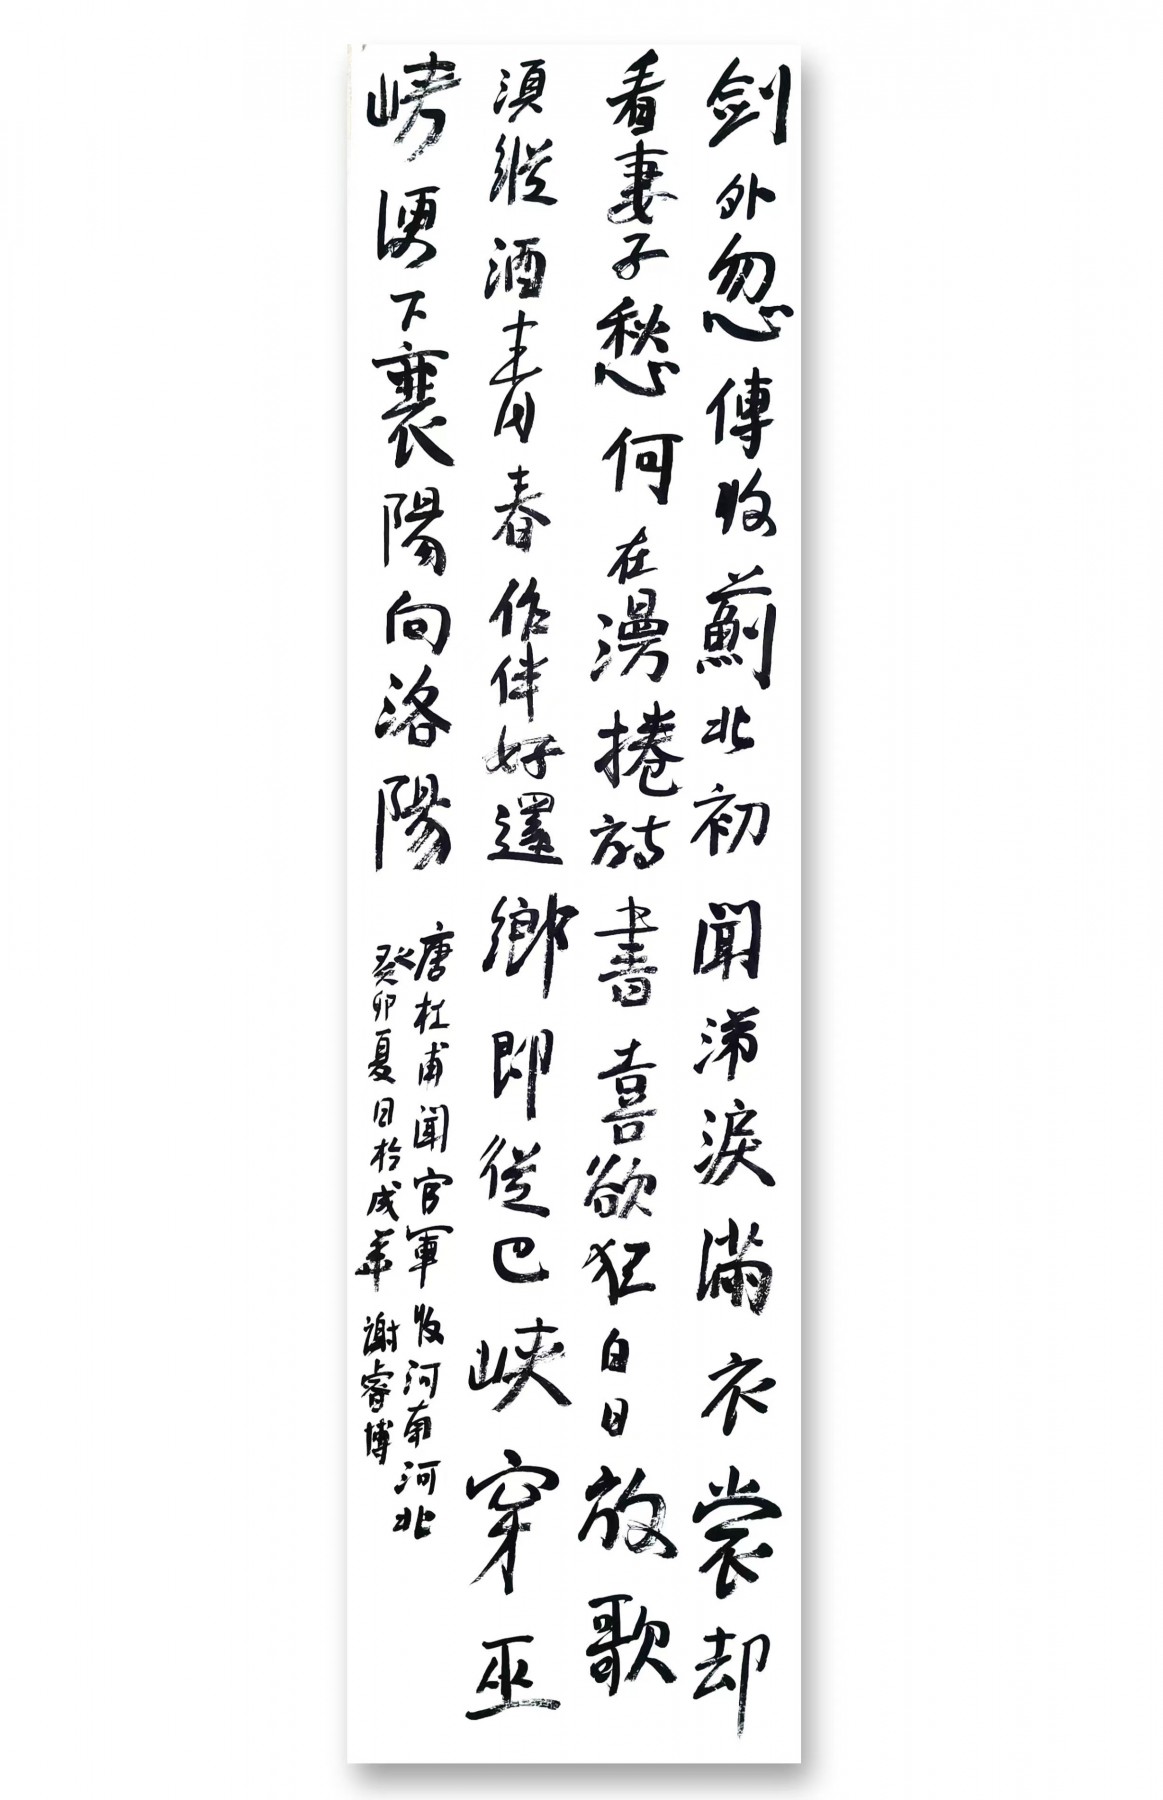 剑外忽傳收薊北初聞涕淚滿衣裳却
看妻子愁何在漫捲詩書喜欲狂白日放歌
須縱酒青春作伴好還鄉即從巴峽穿巫
峡便下襄陽向洛陽
唐杜甫聞官軍收河南河北
癸卯夏日於成華謝睿博